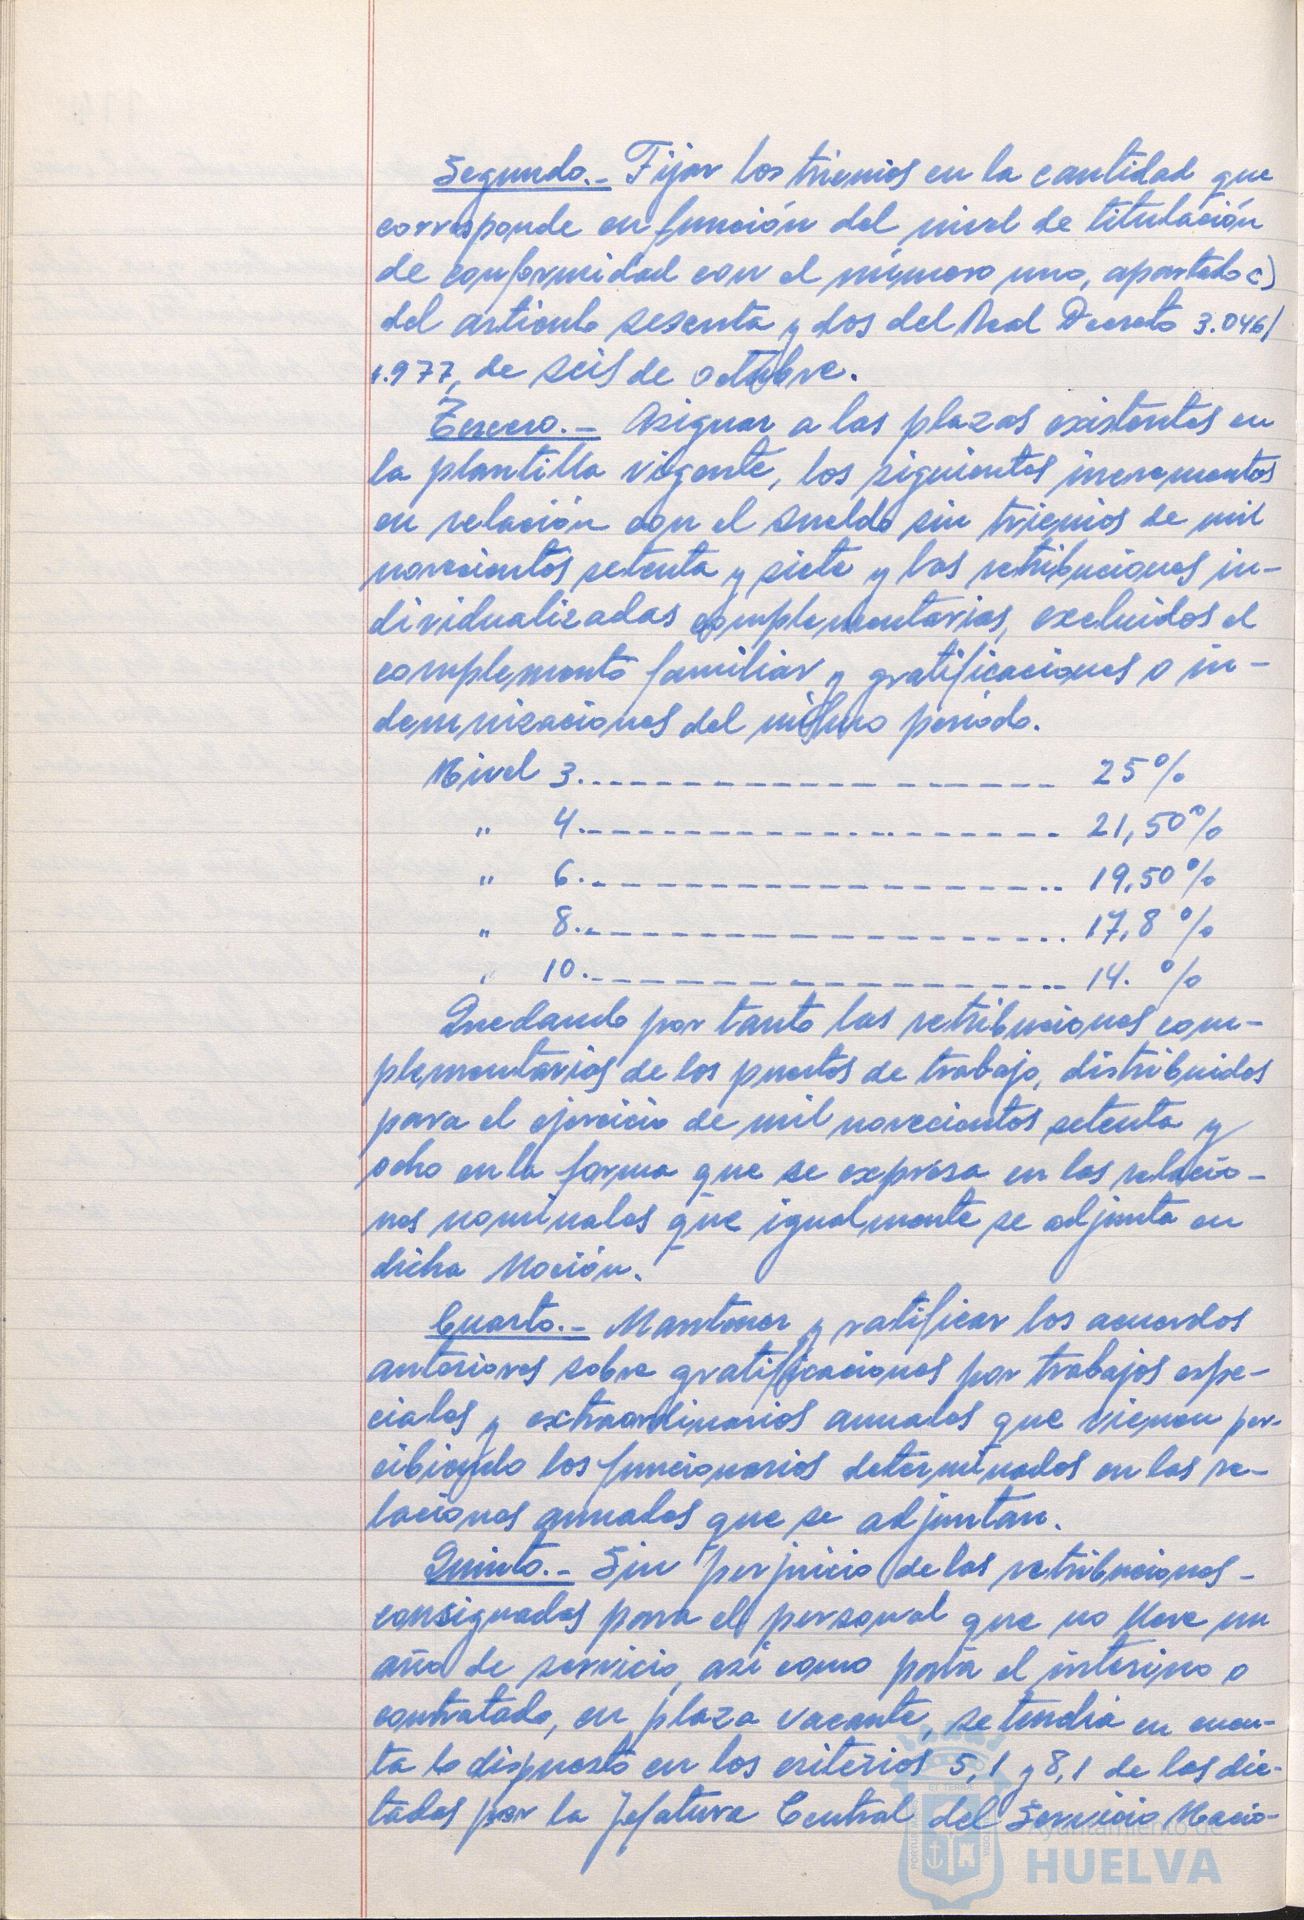 Segundo.- Fijar los trienios en la cantidad que
corresponde en función del nivel de titulación
de conformidad con el número uno, apartado c)
del artículo sesenta y dos del Real Decreto 3.046/
1.977, de seis de octubre.
Tercero.- Asignar a las plazas existentes en
la plantilla vigente, los siguientes incrementos
en relación con el sueldo sin trienios de mil
novecientos setenta y siete y las retribuciones in-
dividualizadas complementarias, excluidos el
complemento familiar y gratificaciones o in-
demnizaciones del mismo período.
Nivel 3.------------------ 25%
" 4.------------------ 21,50%
" 6.------------------ 19,50%
" 8.------------------ 17,8 %
" 10.------------------ 14. %
Quedando por tanto las retribuciones com-
plementarias de los puestos de trabajo, distribuidos
para el ejercicio de mil novecientos setenta y
ocho en la forma que se expresa en las relacio-
nes nominales que igualmente se adjunta en
dicha Moción.
Cuarto.- Mantener y ratificar los acuerdos
anteriores sobre gratificaciones por trabajos espe-
ciales y extraordinarios anuales que vienen per-
cibiendo los funcionarios determinados en las re-
laciones anuales que se adjuntan.
Quinto.- Sin perjuicio de las retribuciones-
consignadas para el personal que no lleve un
año de servicio, así como para el interino o
contratado, en plaza vacante, se tendrá en cuen-
ta lo dispuesto en los criterios 5,1 y 8,1 de los dic-
tados por la Jefatura Central del Servicio Nacio-
Ayuntamiento de
HUELVA